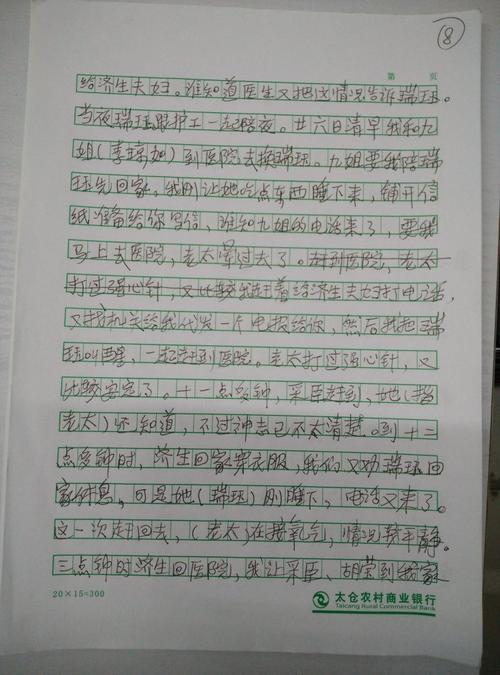 ⑧
第 页
给济生夫妇。谁知道医生又把这情况告诉瑞珏。
当夜瑞珏跟护工一起陪夜。廿六日清早我和九
姐(李琼如)到医院去换瑞珏。九姐要我陪瑞
珏先回家。我刚让她吃点东西睡下来,铺开信
纸准备给你写信,谁知九姐的电话来了,要我
马上去医院,老太晕过去了。赶到医院,老太
打过强心针,又比较我赶着给济生夫妇打电话,
又找机关给我代发一片电报给你,然后我把瑞
珏叫醒,一起赶到医院。老太打过强心针,又
比较安定了。十一点多钟,采臣赶到,她(指
老太)还知道,不过神志已不太清楚。到十二
点多钟时,济生回家穿衣服,我们又劝瑞珏回
家休息,可是她(瑞珏)刚睡下,电话又来了。
这一次赶回去,(老太)在接氧气,情况较平静。
三点钟时济生回医院,我让采臣、胡荣到我家
20×15=300
太仓农村商业银行
Taicang Rural Commercial Bank